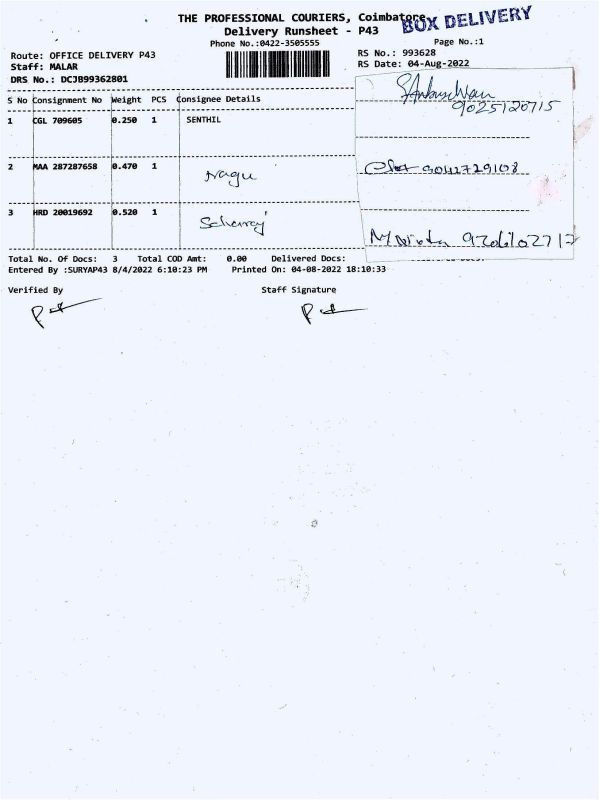 THE PROFESSIONAL COURIERS, Coimbatore
BOX DELIVERY
Delivery Runsheet - P43
Phone No.:0422-3505555
Page No.:1
Route: OFFICE DELIVERY P43
RS No.: 993628
Staff: MALAR
RS Date: 04-Aug-2022
DRS No.: DCJB99362801
S No Consignment No Weight PCS Consignee Details
9025120715
1 CGL 709605 0.250 1 SENTHIL
2 MAA 287287658 0.470 1 Nagu
9042729108
3 HRD 20019692 0.520 1
Total No. Of Docs: 3 Total COD Amt: 0.00 Delivered Docs:
Entered By :SURYAP43 8/4/2022 6:10:23 PM Printed On: 04-08-2022 18:10:33
Verified By Staff Signature